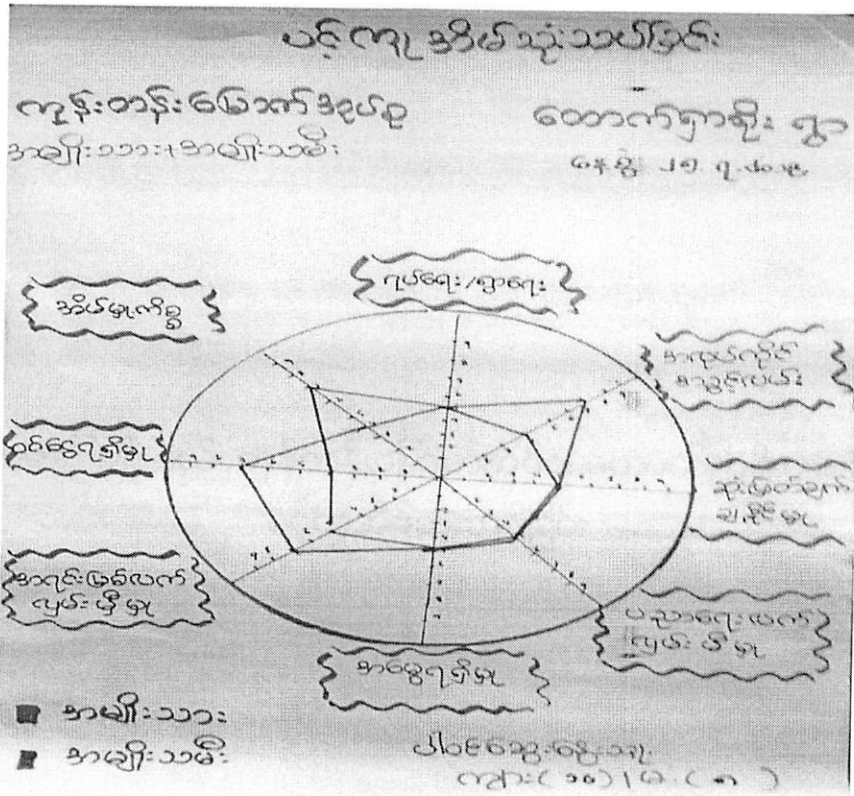 ပင့်ကူအိမ်သုံးသပ်ခြင်း
ကုန်းတန်းမြောက်အုပ်စု
တောက်ရှာချိုး ရွာ
အမျိုးသား+အမျိုးသမီး
နေ့စွဲ
ရပ်ရေး/ရွာရေး
အိမ်မှုကိစ္စ
အလုပ်ကိုင်
အခွင့်လမ်း
ဝင်ငွေရရှိမှု
ဆုံးဖြတ်ချက်
ချနိုင်မှု
အရင်းမြစ်လက်
လှမ်းမှီမှု
ပညာရေးလက်
လှမ်းမှီမှု
အမွေရရှိမှု
အမျိုးသား
အမျိုးသမီး
ပါဝင်ဆွေးနွေးသူ
ကျား(၁၀) ၊ မ